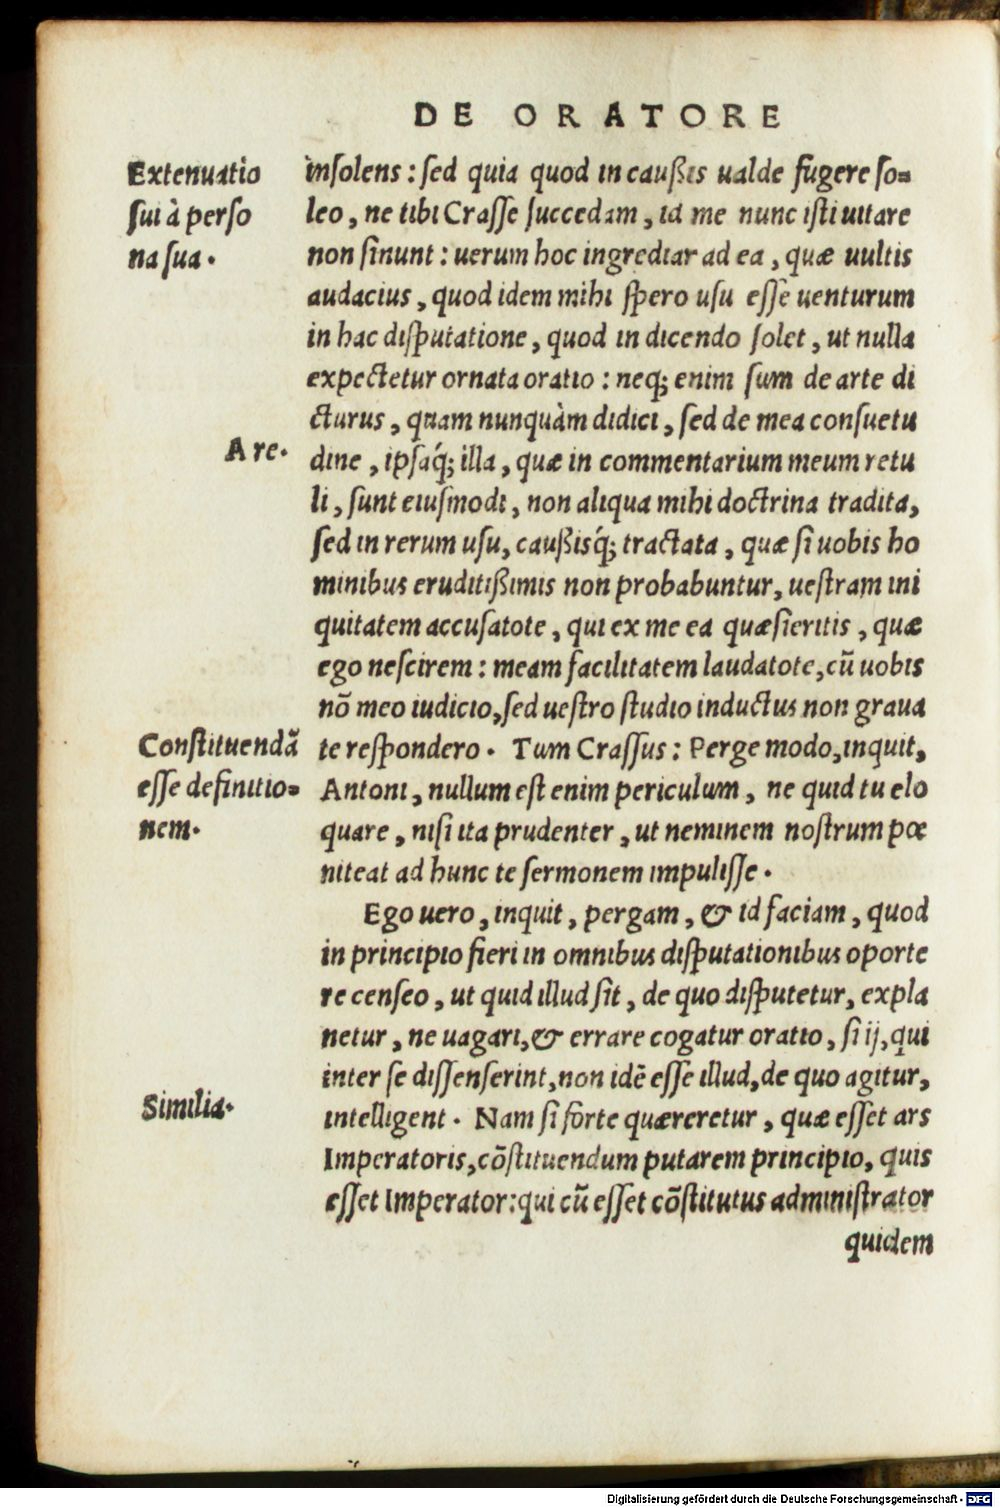 DE ORATORE
Extenuatio
sui à perso
na sua.
insolens: sed quia quod in caußis ualde fugere so=
leo, ne tibi Crasse succedam, id me nunc isti uitare
non sinunt: uerum hoc ingrediar ad ea, quæ uultis
audacius, quod idem mihi spero usu esse uenturum
in hac disputatione, quod in dicendo solet, ut nulla
expectetur ornata oratio: neq; enim sum de arte di
cturus, quam nunquàm didici, sed de mea consuetu
A re.
dine, ipsaq́; illa, quæ in commentarium meum retu
li, sunt eiusmodi, non aliqua mihi doctrina tradita,
sed in rerum usu, caußisq́; tractata, quæ si uobis ho
minibus eruditißimis non probabuntur, uestram ini
quitatem accusatote, qui ex me ea quæsieritis, quæ
ego nescirem: meam facilitatem laudatote, cũ uobis
nõ meo iudicio, sed uestro studio inductus non graua
Constituendã
esse definitio=
nem.
te respondero. Tum Crassus: Perge modo, inquit,
Antoni, nullum est enim periculum, ne quid tu elo
quare, nisi ita prudenter, ut neminem nostrum pœ
niteat ad hunc te sermonem impulisse.
Ego uero, inquit, pergam, & id faciam, quod
in principio fieri in omnibus disputationibus oporte
re censeo, ut quid illud sit, de quo disputetur, expla
netur, ne uagari, & errare cogatur oratio, si ij, qui
inter se dissenserint, non idẽ esse illud, de quo agitur,
Similia.
intelligent. Nam si forte quæreretur, quæ esset ars
Imperatoris, cõstituendum putarem principio, quis
esset Imperator: qui cũ esset cõstitutus administrator
quidem
Digitalisierung gefördert durch die Deutsche Forschungsgemeinschaft - DFG